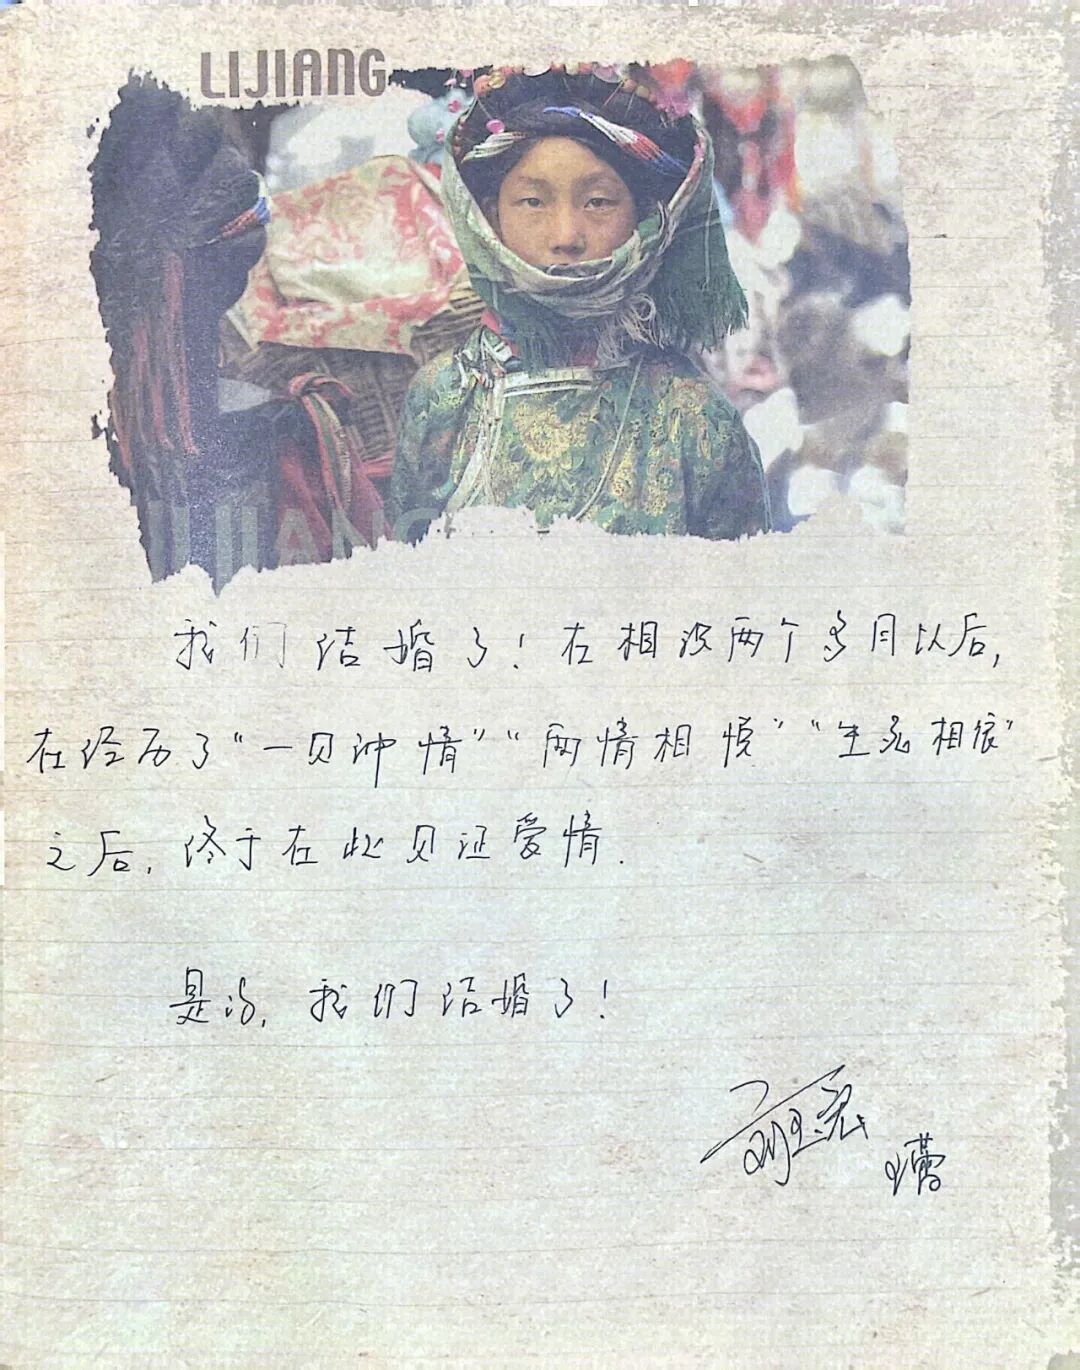 LIJIANG
LIJIANG
我们结婚了！在相没两个多月以后，
在经历了“一见冲情”“两情相悦”“生死相依”
之后，终于在此见证爱情.
是的，我们结婚了！